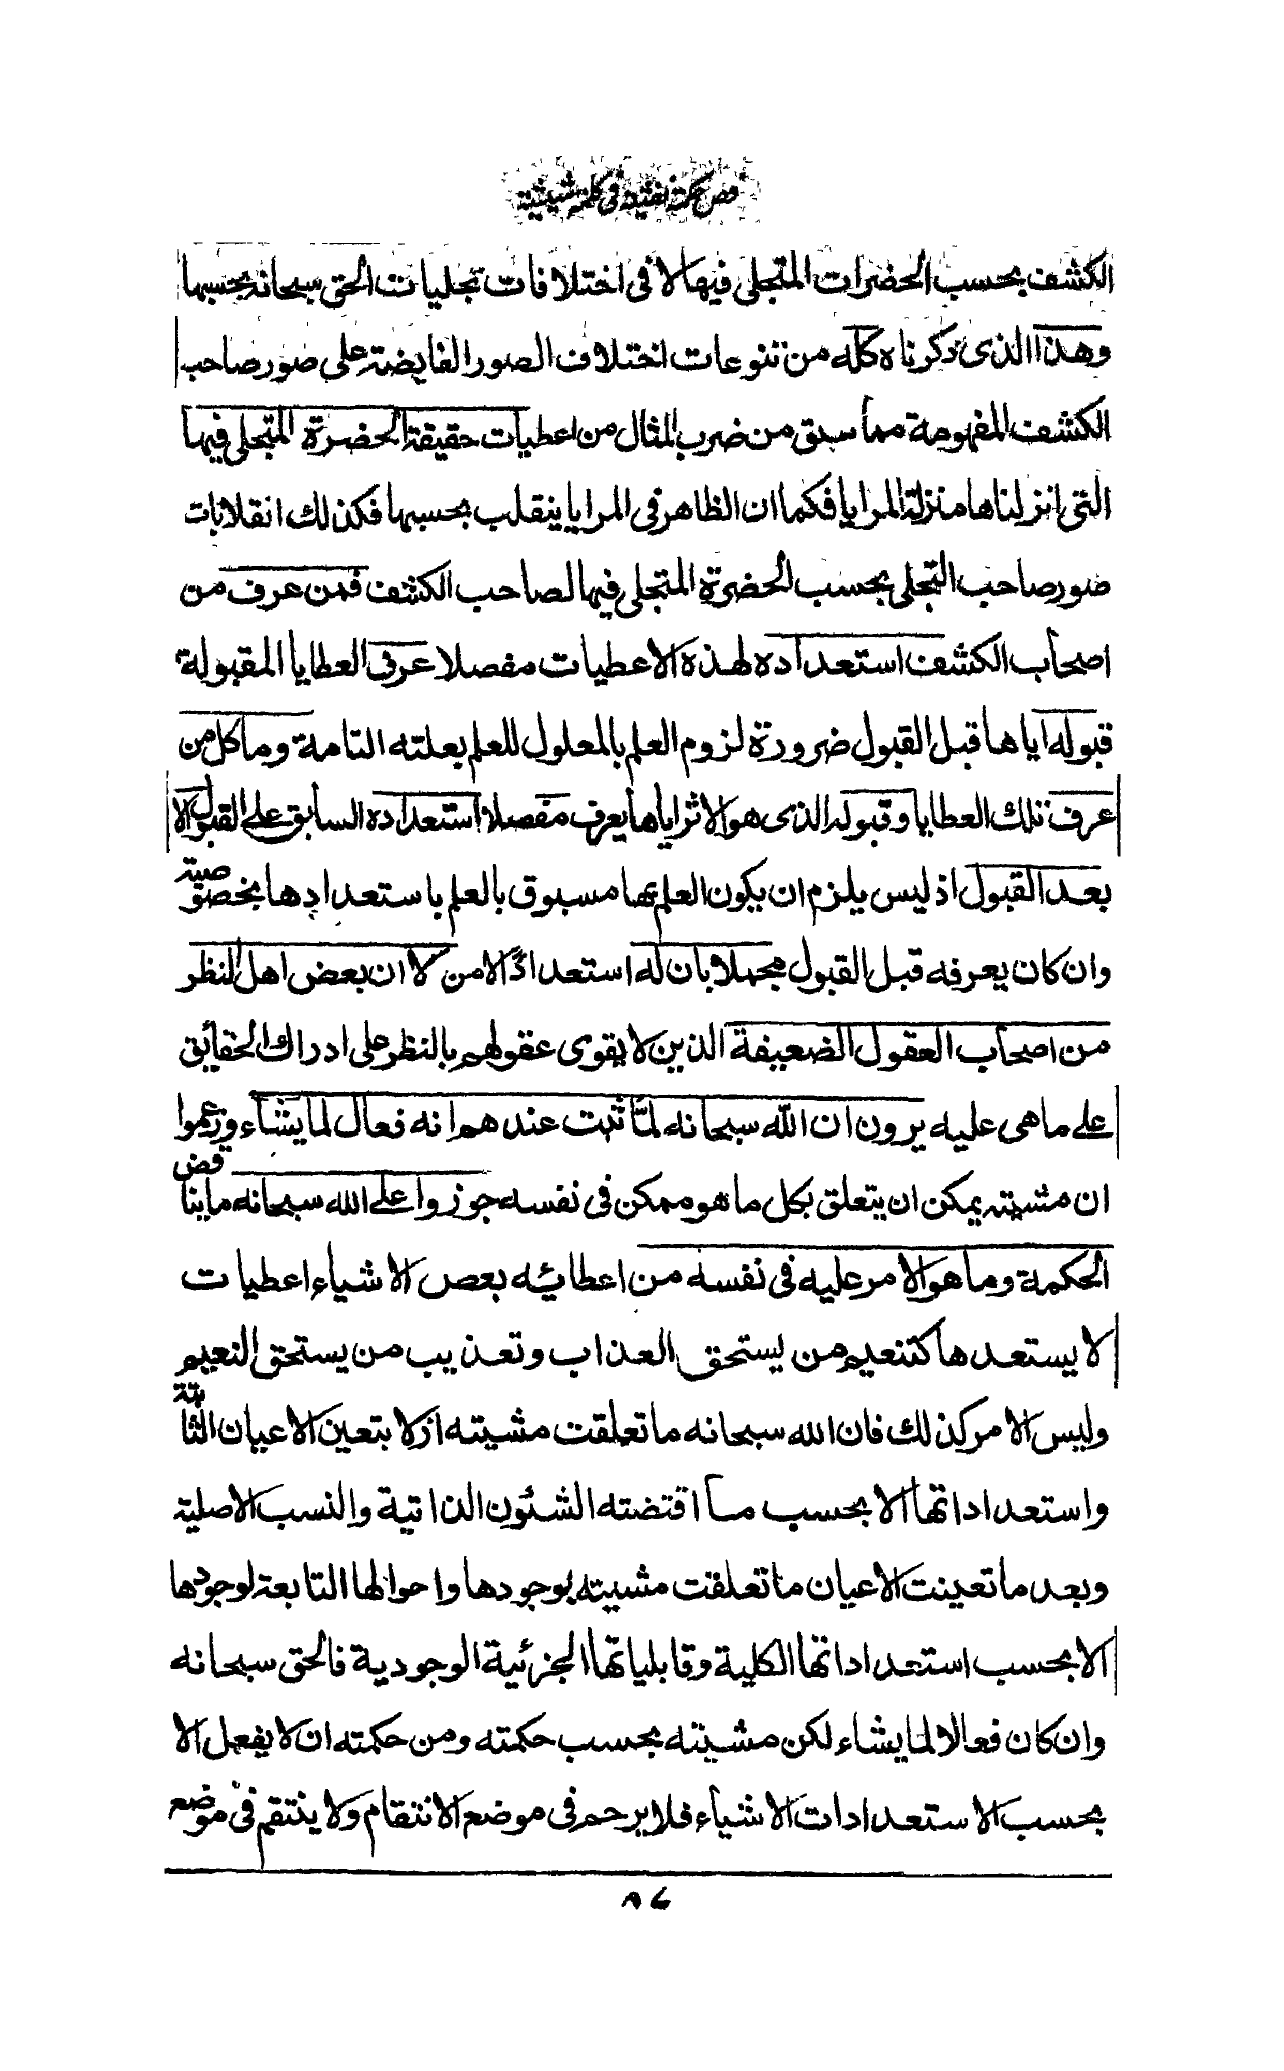 فص حكمة نفثية فى كلمة شيثية
الكشف بحسب الحضرات المتجلى فيها لا فى اختلافات تجليات الحق سبحانه بحسبها
وهذا الذى ذكرناه كله من تنوعات اختلاف الصور الفايضة على صور صاحب
الكشف المفهومة مما سبق من ضرب المثال من اعطيات حقيقة الحضرة المتجلى فيها
التى انزلناها منزلة المرايا فكما ان الظاهر فى المرايا ينقلب بحسبها فكذلك انقلابات
صور صاحب التجلى بحسب الحضرة المتجلى فيها لصاحب الكشف فمن عرف من
اصحاب الكشف استعداده لهذه الاعطيات مفصلا عرف العطايا المقبولة
قبوله اياها قبل القبول ضرورة لزوم العلم بالمعلول للعلم بعلته التامة وما كل من
عرف تلك العطايا وقبوله الذى هو الاثر اياها يعرف مفصلا استعداده السابق على القبول الا
بعد القبول اذ ليس يلزم ان يكون العلم بها مسبوق بالعلم باستعدادها بخصوصية
وان كان يعرفه قبل القبول مجملا بان له استعدادًا لامن لا ان بعض اهل النظر
من اصحاب العقول الضعيفة الذين لا يقوى عقولهم بالنظر على ادراك الحقائق
على ماهى عليه يرون ان الله سبحانه لمّا ثبت عندهم انه فعال لما يشاء وزعموا
ان مشيته يمكن ان يتعلق بكل ما هو ممكن فى نفسه جوزوا على الله سبحانه ما يناقض
الحكمة وما هو الامر عليه فى نفسه من اعطائه بعض الاشياء اعطيات
لا يستعدها كتنعيم من يستحق العذاب وتعذيب من يستحق النعيم
وليس الامر كذلك فان الله سبحانه ما تعلقت مشيته ازلا بتعين الاعيان الثابتة
واستعداداتها الا بحسب ما اقتضته الشئون الذاتية والنسب الاصلية
وبعد ما تعينت الاعيان ما تعلقت مشيته بوجودها واحوالها التابعة لوجودها
الا بحسب استعداداتها الكلية وقابلياتها الجزئية الوجودية فالحق سبحانه
وان كان فعالا لما يشاء لكن مشيته بحسب حكمته ومن حكمته ان لا يفعل الا
بحسب الاستعدادات الاشياء فلا يرحم فى موضع الانتقام ولا ينتقم فى موضع